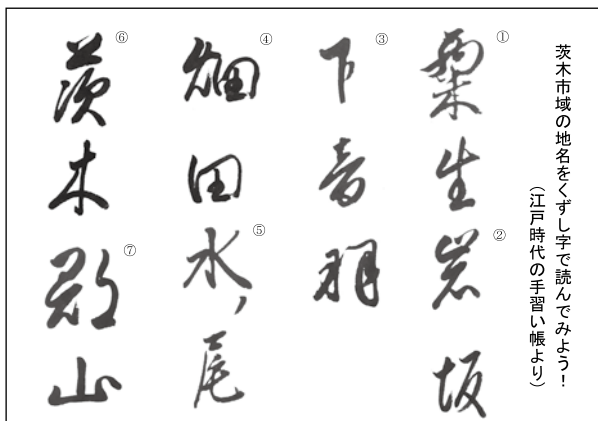 茨木市域の地名をくずし字で読んでみよう！
（江戸時代の手習い帳より）
①
粟生
②
岩坂
③
下音羽
④
畑田
⑤
水ノ尾
⑥
茨木
⑦
郡山